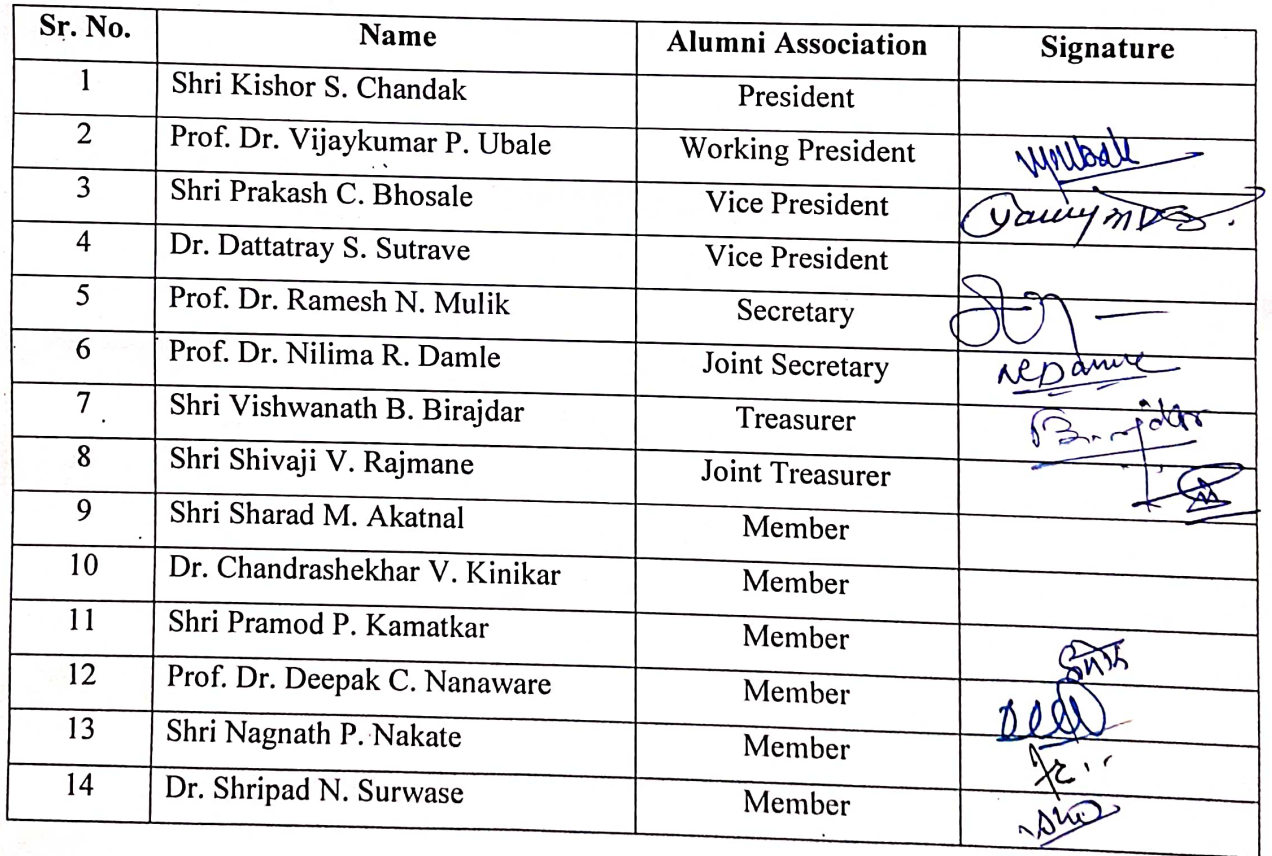 Sr. No. Name Alumni Association Signature
1 Shri Kishor S. Chandak President
2 Prof. Dr. Vijaykumar P. Ubale Working President
3 Shri Prakash C. Bhosale Vice President
4 Dr. Dattatray S. Sutrave Vice President
5 Prof. Dr. Ramesh N. Mulik Secretary
6 Prof. Dr. Nilima R. Damle Joint Secretary
7 Shri Vishwanath B. Birajdar Treasurer
8 Shri Shivaji V. Rajmane Joint Treasurer
9 Shri Sharad M. Akatnal Member
10 Dr. Chandrashekhar V. Kinikar Member
11 Shri Pramod P. Kamatkar Member
12 Prof. Dr. Deepak C. Nanaware Member
13 Shri Nagnath P. Nakate Member
14 Dr. Shripad N. Surwase Member